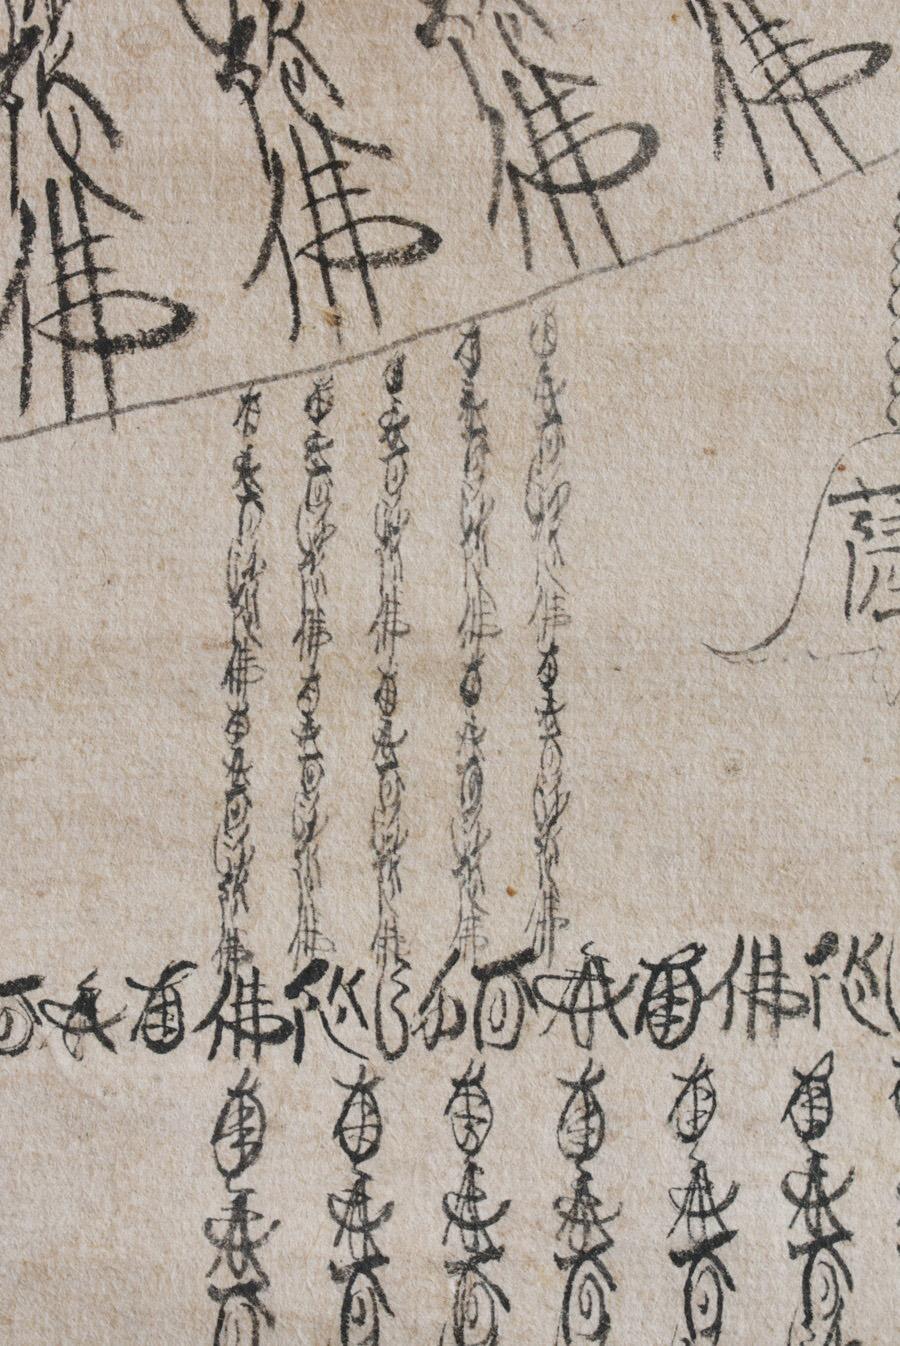 佛
陀佛
陀佛
陀佛
南無阿彌陀佛南無阿彌陀佛
南無阿彌陀佛南無阿彌陀佛
南無阿彌陀佛南無阿彌陀佛
南無阿彌陀佛南無阿彌陀佛
南無阿彌陀佛南無阿彌陀佛
陀佛南無阿彌陀佛南無阿
南無阿
南無阿
南無阿
南無阿
南無阿
南無阿